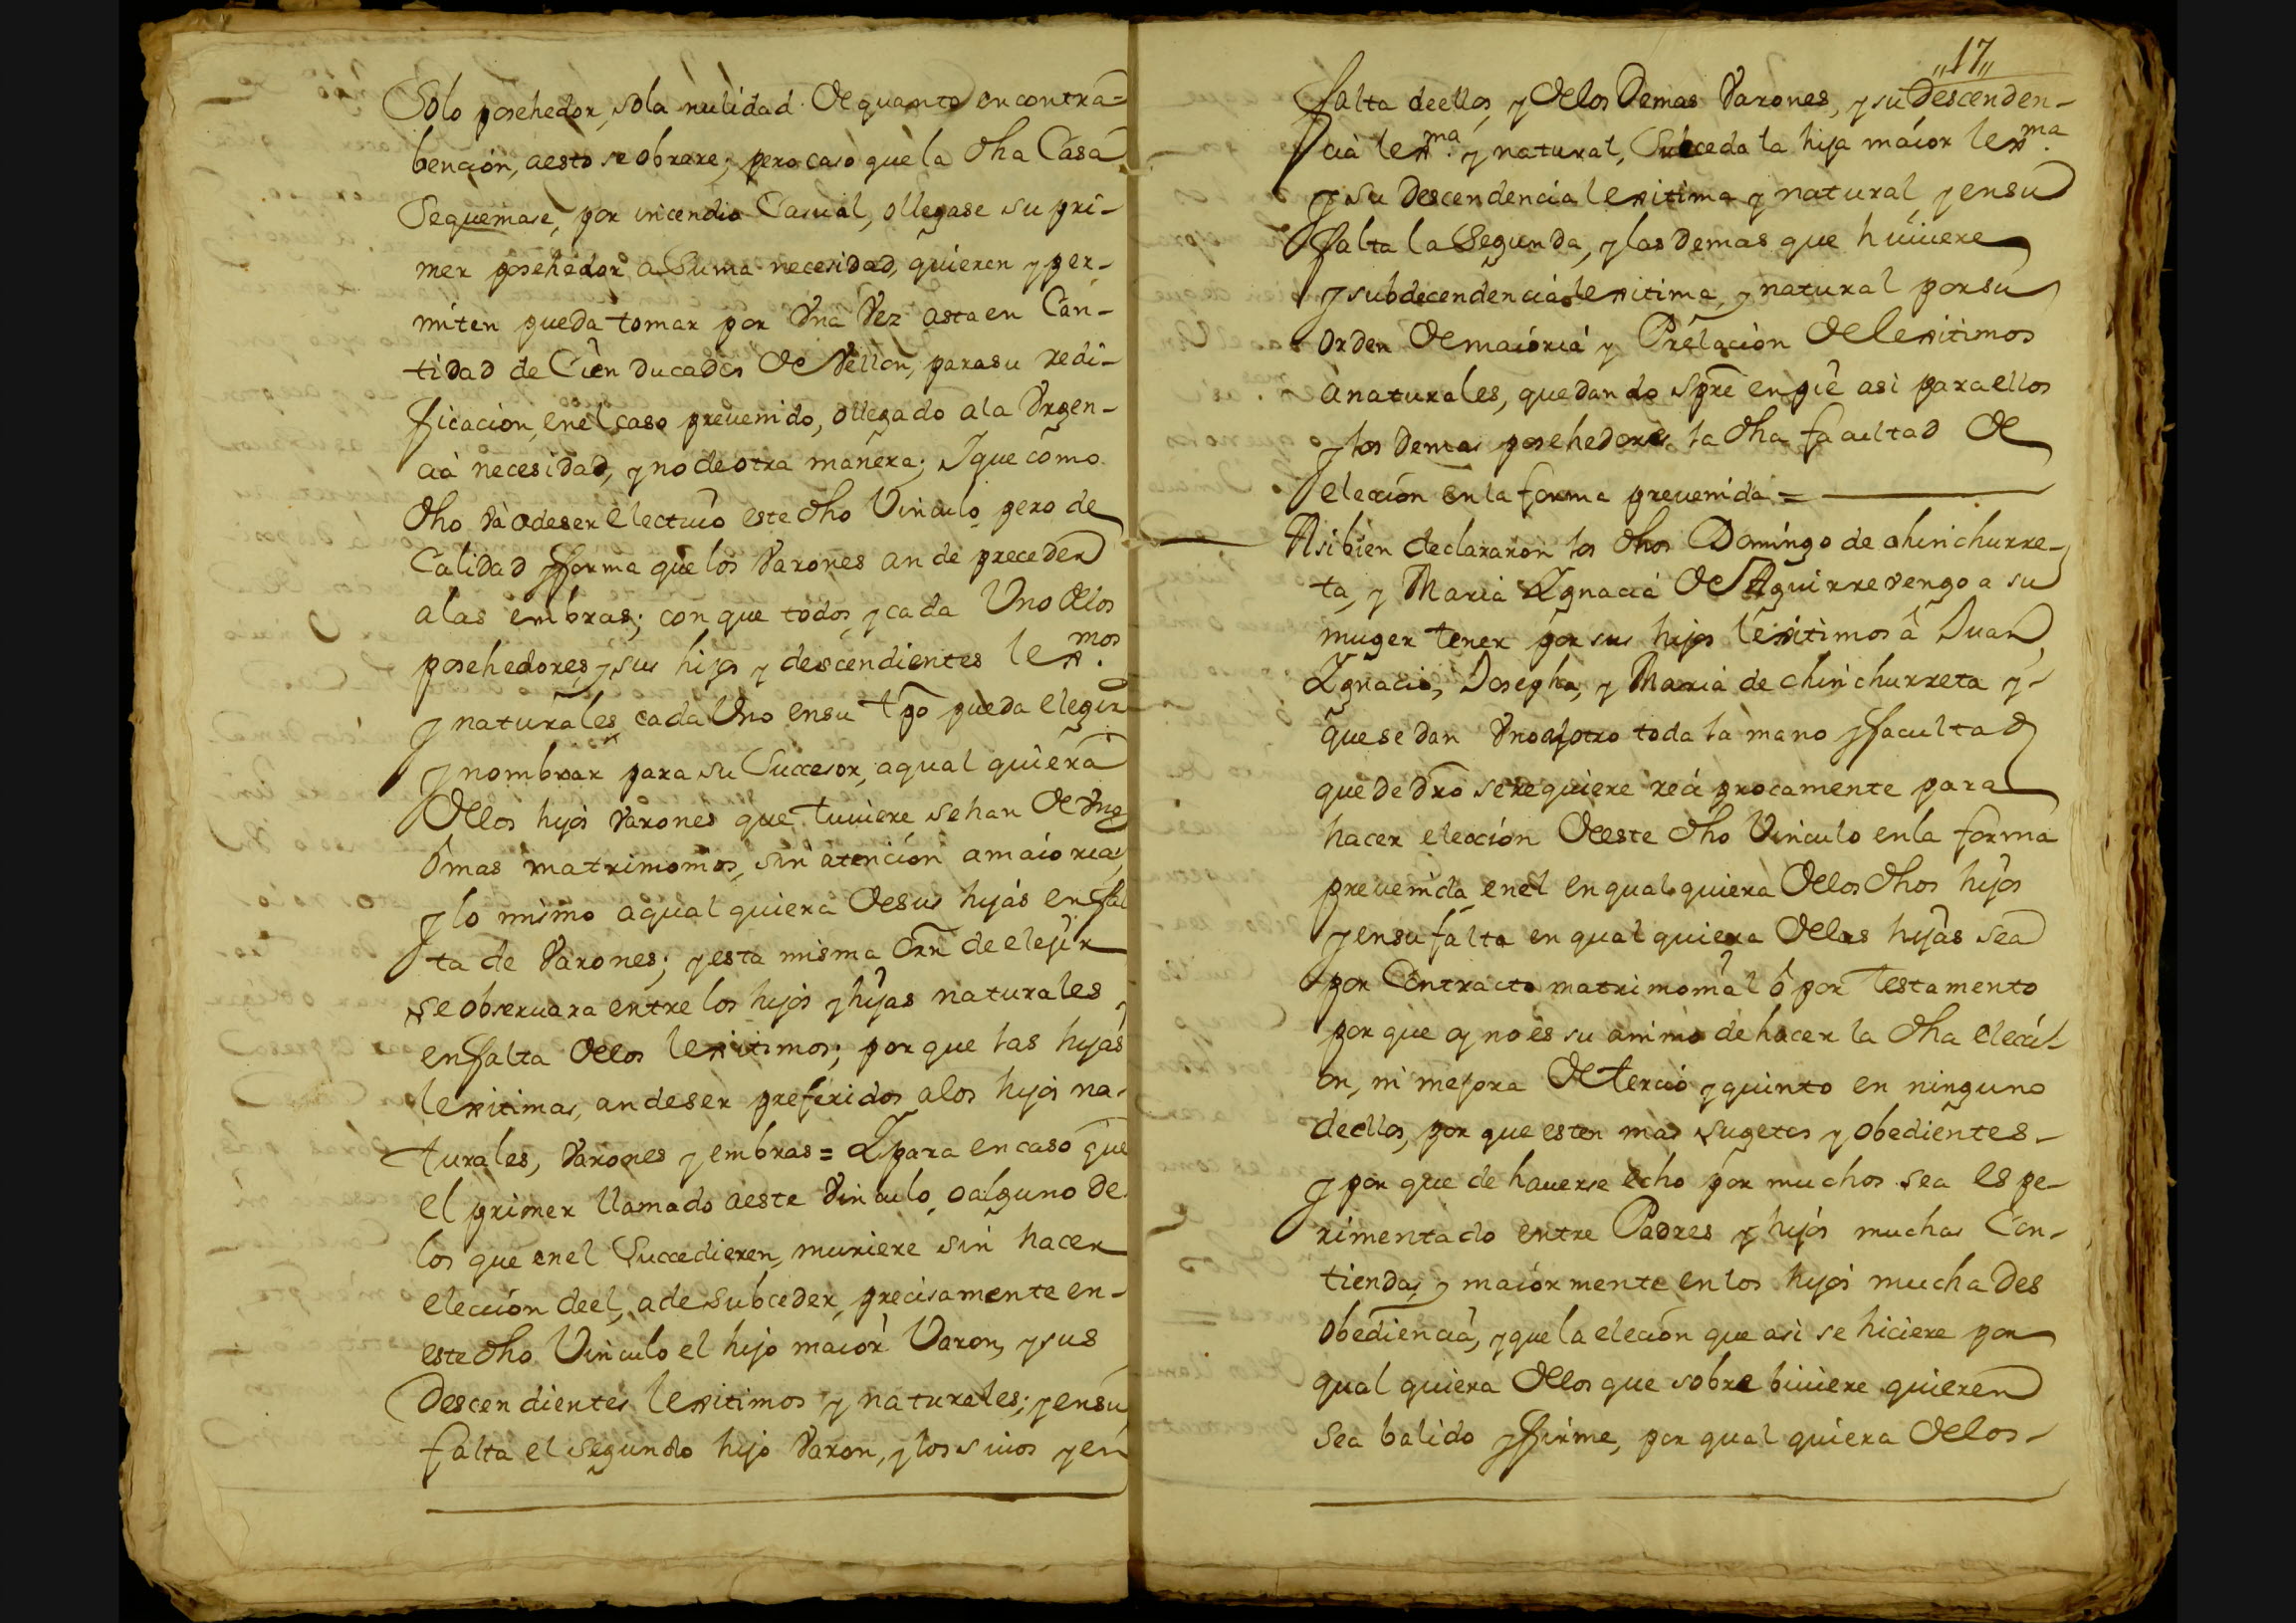 Solo posehedor, sola nulidad de quanto en contra=
bencion, aesto se obrare; pero caso que la dha Casa
Sequemase, por incendio Casual, ollegase su pri-
mer posehedor a Suma necesidad, quieren y per-
miten pueda tomar por Vna Vez asta en Can-
tidad de Cien ducados de Vellon, parasu redi-
ficacion, enel caso preuenido, ollegado ala Vrgen-
cia necesidad, y no de otra manera; Y que como
dho Va a deser electiuo este dho Vinculo pero de
Calidad y forma que los Varones an de preceder
alas embras; con que todos y cada Uno delos
posehedores, y sus hijos y descendientes lexmos.
y naturales cada Uno ensu tpo pueda elegir
y nombrar para su Succesor, aqual quiera
delos hijos Varones que tuuiere sehan de Vno
ô mas matrimonios, sin atencion amaioria,
y lo mismo aqual quiera desus hijas en fal
ta de Varones; y esta misma orñ de elejir
se obseruara entre los hijos y hijas naturales,
enfalta delos lexitimos; por que las hijas
lexitimas, andeser preferidos alos hijos na-
turales, Varones y embras = Y para en caso que
el primer llamado aeste Vinculo, o alguno de
los que enel Succedieren, muriere sin hacer
eleccion deel, ade subceder, precisamente en-
este dho Vinculo el hijo maior Varon, y sus
Descendientes lexitimos y naturales; y ensu
falta el segundo hijo Varon, y los suios y en
,,17,,
falta deellos, y delos Demas Varones, y su Descenden-
cia lexma. y natural, Subceda la hija maior lexma.
y su Descendencia lexitima y natural, y ensu
falta la Segunda, y las demas que huuiere
y subdecendencia lexitima, y natural porsu
orden de maioria y Prelacion de lexitimos
a naturales, quedando spre en pie asi paraellos
y los Demas posehedores la dha facultad de
eleccion en la forma preuenida =
Asibien declararon los dhos Domingo de chinchurre-
ta, y Maria Ygnacia de Aguirrevengoa su
muger tener por sus hijos lexitimos â Juan
Ygnacio, Josepha, y Maria de chinchurreta y-
que se dan Vno a otro toda la mano y facultad
que de dro se requiere reciprocamente para
hacer eleccion de este dho Vinculo en la forma
preuenida enel en qual quiera delos dhos hijos
y ensu falta en qual quiera delas hijas sea
por Contracto matrimonial ô por Testamento
por que oy no es su animo de hacer la dha elecci-
on, ni mejora de tercio y quinto en ninguno
deellos, por que esten mas sugetos y obedientes-
y por que de hauerse echo por muchos sea espe-
rimentado entre Padres y hijos muchas Con-
tiendas y maiormente en los hijos mucha Des
obediencia, y que la elecion que asi se hiciere por
qual quiera delos que sobre biuiere quieren
sea balido y firme, por qual quiera delos-